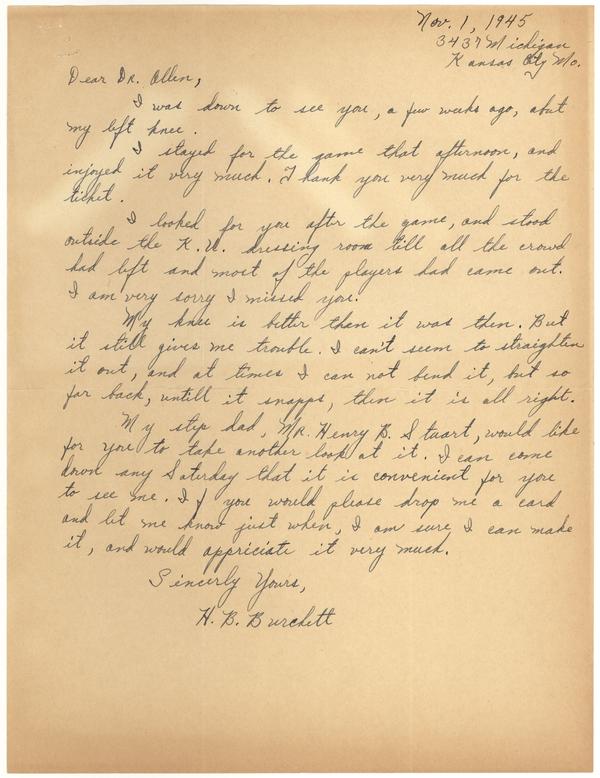 Nov. 1, 1945
3437 Michigan
Kansas City Mo.
Dear Dr. Allen,
I was down to see you, a few weeks ago, abut
my left knee.
I stayed for the game that afternoon, and
injoyed it very much. Thank you very much for the
ticket.
I looked for you after the game, and stood
outside the K.U. dressing room till all the crowd
had left and most of the players had came out.
I am very sorry I missed you.
My knee is better than it was then. But
it still gives me trouble. I can't seem to straighten
it out, and at times I can not bend it, but so
far back, untill it snapps, then it is all right.
My step dad, Mr. Henry B. Stuart, would like
for you to take another look at it. I can come
down any Saturday that it is convenient for you
to see me. If you would please drop me a card
and let me know just when, I am sure I can make
it, and would appriciate it very much.
Sincerly Yours,
H. B. Burchett